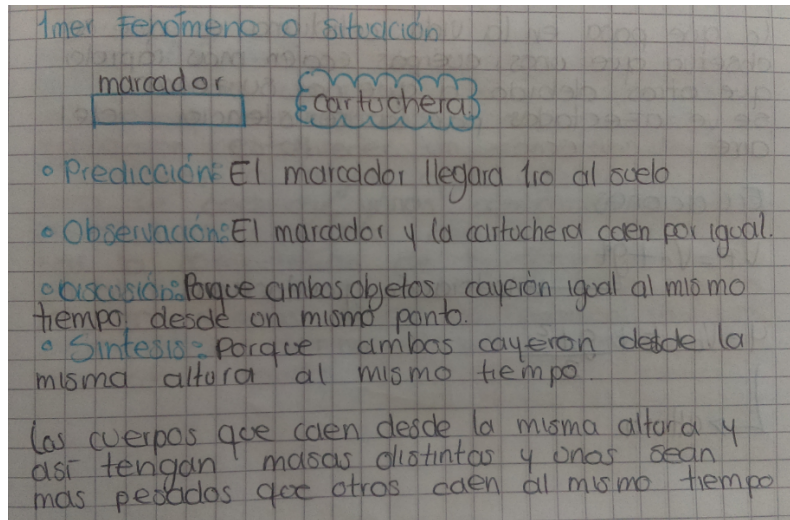 1mer Fenómeno o situación
marcador
cartuchera
Predicción: El marcador llegara 1ro al suelo
Observación: El marcador y la cartuchera caen por igual.
Discusión: Porque ambos objetos cayerón igual al mismo
tiempo desde un mismo punto.
Sintesis: Porque ambos cayeron desde la
misma altura al mismo tiempo.
Los cuerpos que caen desde la misma altura y
asi tengan masas distintas y unos sean
mas pesados que otros caen al mismo tiempo